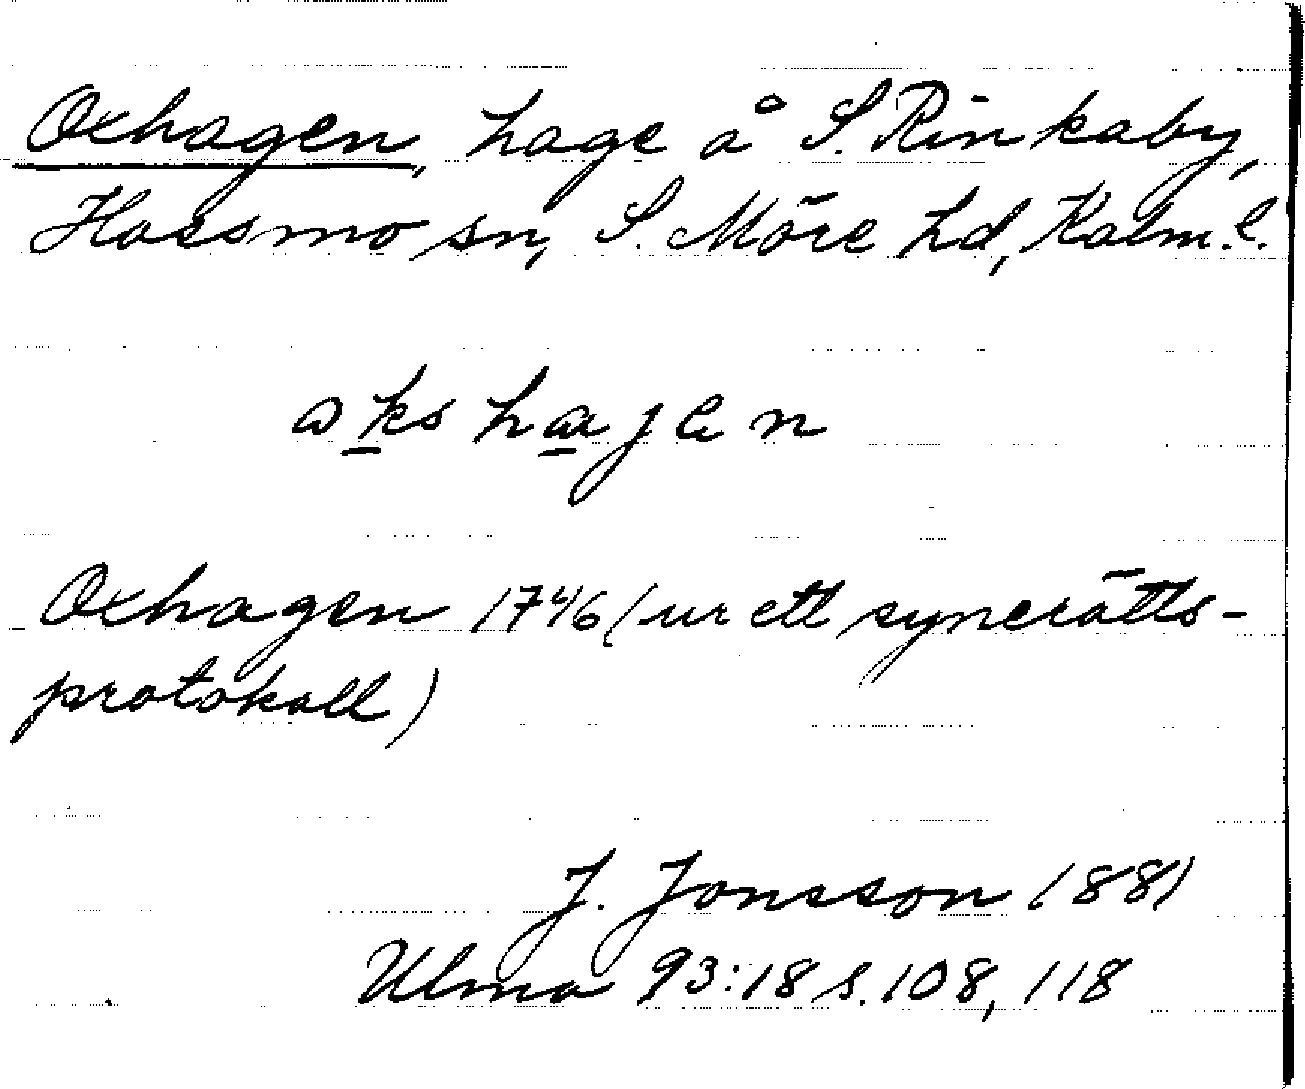 Oxhagen, hage å S. Rinkaby,
Hossmo sn, S. Möre hd, Kalm. l.
okshajen
Oxhagen 1746 (ur ett synerätts-
protokoll)
J. Jonsson 1881
Ulma 93:18 s. 108, 118